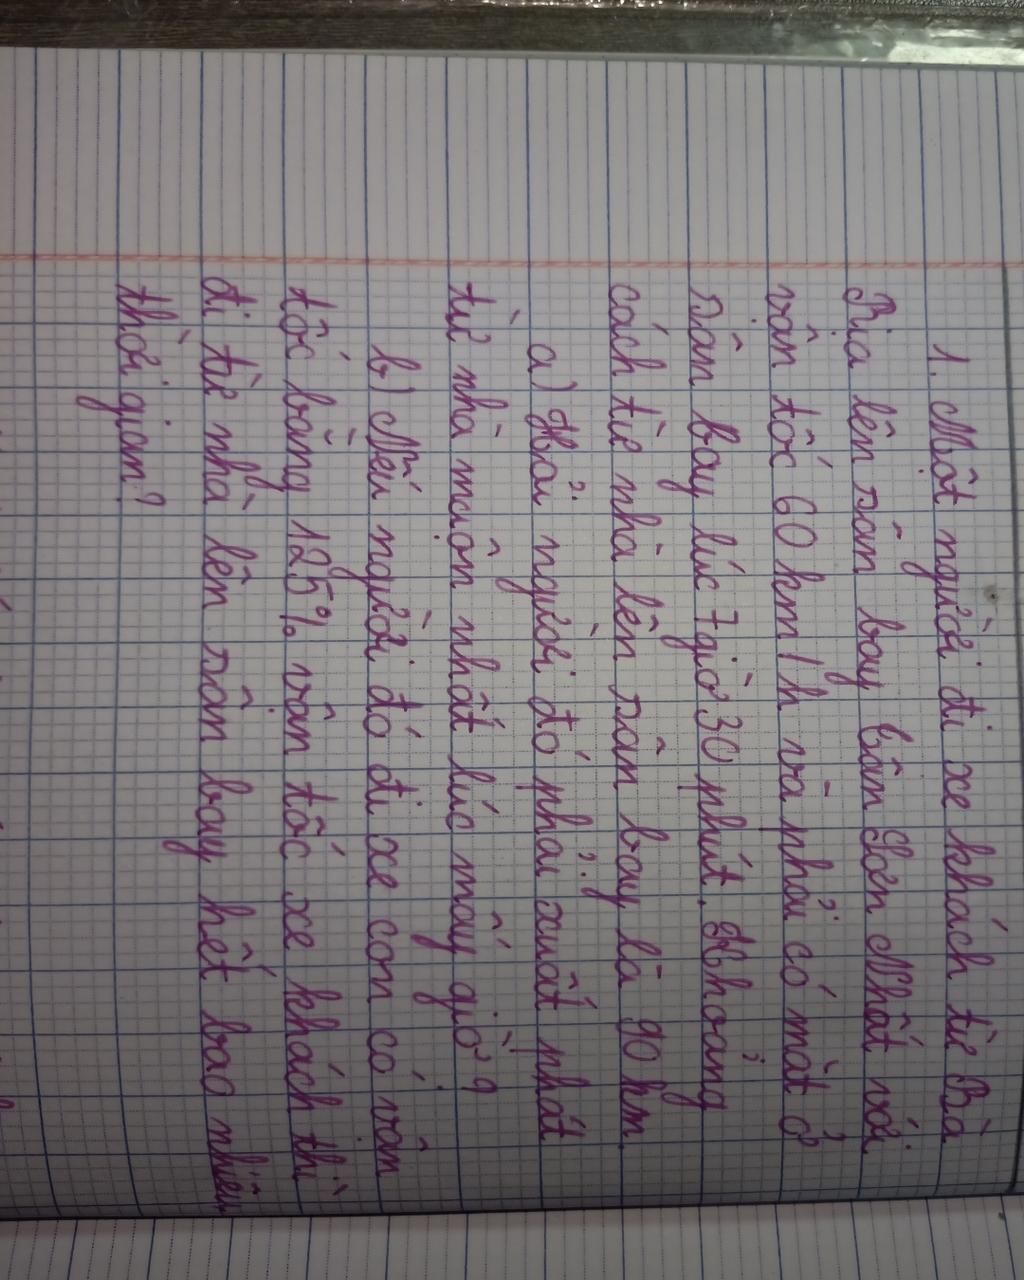 1. Một người đi xe khách từ Bà
Rịa lên sân bay Tân Sơn Nhất với
vận tốc 60 km/h và phải có mặt ở
sân bay lúc 7 giờ 30 phút. Khoảng
cách từ nhà lên sân bay là 90 km.
a) Hỏi người đó phải xuất phát
từ nhà muộn nhất lúc mấy giờ?
b) Nếu người đó đi xe con có vận
tốc bằng 125% vận tốc xe khách thì
đi từ nhà lên sân bay hết bao nhiêu
thời gian?